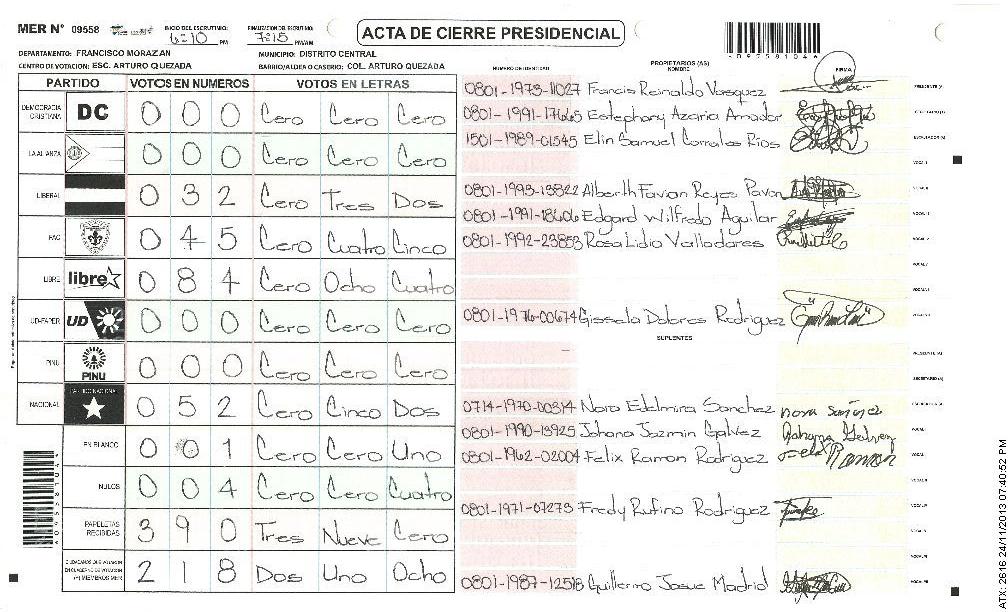 MER N° 09558
INICIO DEL ESCRUTINIO: 6:10 PM
FINALIZACION DEL ESCRUTINIO: 7:15 PM/AM
ACTA DE CIERRE PRESIDENCIAL
DEPARTAMENTO: FRANCISCO MORAZAN
MUNICIPIO: DISTRITO CENTRAL
CENTRO DE VOTACION: ESC. ARTURO QUEZADA
BARRIO/ALDEA O CASERIO: COL. ARTURO QUEZADA
PARTIDO VOTOS EN NUMEROS VOTOS EN LETRAS
DEMOCRACIA CRISTIANA DC 0 0 0 Cero Cero Cero
LA ALIANZA 0 0 0 Cero Cero Cero
LIBERAL 0 3 2 Cero Tres Dos
PAC 0 4 5 Cero Cuatro Cinco
LIBRE libre 0 8 4 Cero Ocho Cuatro
UD-FAPER UD 0 0 0 Cero Cero Cero
PINU PINU 0 0 0 Cero Cero Cero
NACIONAL PARTIDO NACIONAL 0 5 2 Cero Cinco Dos
EN BLANCO 0 0 1 Cero Cero Uno
NULOS 0 0 4 Cero Cero Cuatro
PAPELETAS RECIBIDAS 3 9 0 Tres Nueve Cero
2 1 8 Dos Uno Ocho
*09558104*
NUMERO DE IDENTIDAD
PROPIETARIOS (AS)
NOMBRE
FIRMA
0801-1973-11027 Francis Reinaldo Vasquez
0801-1991-17665 Estephany Azaria Amador
1501-1989-01545 Elin Samuel Corrales Rios
0801-1993-13822 Alberth Favian Reyes Pavon
0801-1991-18606 Edgard Wilfredo Aguilar
0801-1992-23853 Rosa Lidia Valladares
0801-1976-00674 Gissela Dolores Rodriguez
SUPLENTES
0714-1970-00314 Nora Edelmira Sanchez
0801-1990-13925 Johana Jazmin Galvez
0801-1962-02004 Felix Ramon Rodriguez
0801-1971-07273 Fredy Rufino Rodriguez
0801-1987-12518 Guillermo Josue Madrid
ATX-2616 24/11/2013 07:40:52 PM